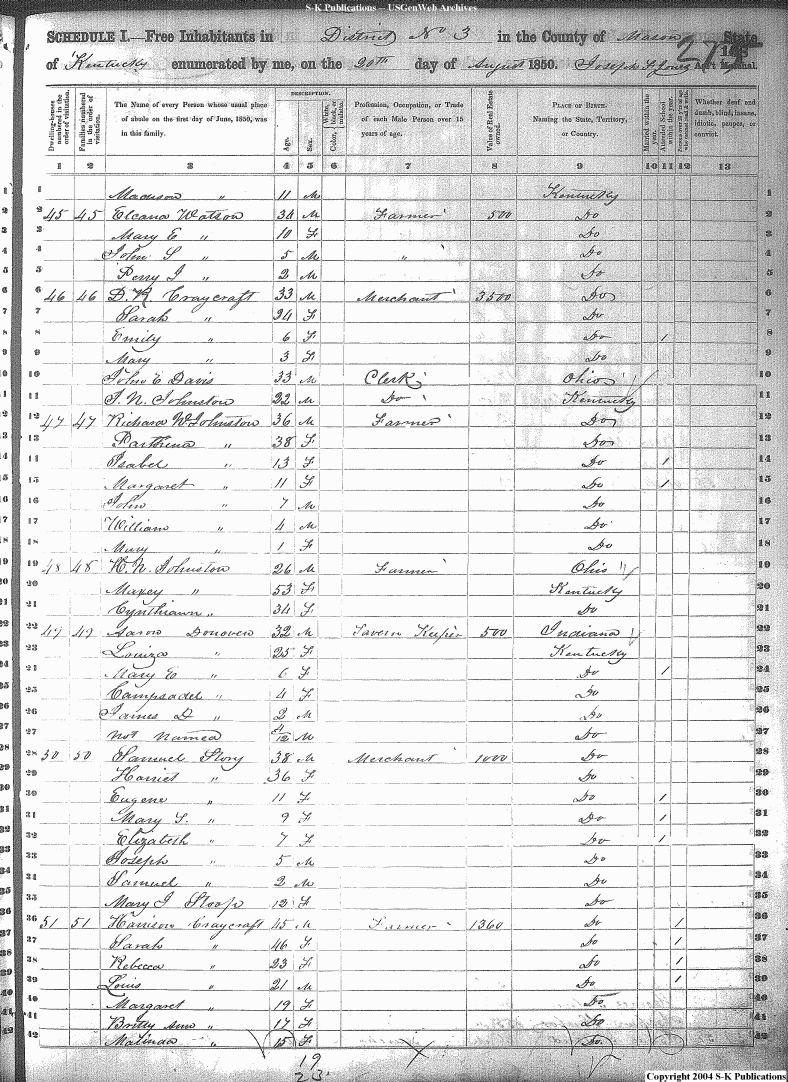 S-K Publications — USGenWeb Archives
SCHEDULE I.—Free Inhabitants in District No 3 in the County of Mason State
of Kentucky enumerated by me, on the 20th day of August 1850. Joseph F. Jones Ass't Marshal.
Dwelling-houses numbered in the order of visitation.
Families numbered in the order of visitation.
The Name of every Person whose usual place of abode on the first day of June, 1850, was in this family.
DESCRIPTION.
Age.
Sex.
Color, White, black, or mulatto.
Profession, Occupation, or Trade of each Male Person over 15 years of age.
Value of Real Estate owned.
PLACE OF BIRTH. Naming the State, Territory, or Country.
Married within the year.
Attended School within the year.
Persons over 20 y'rs of age who cannot read & write.
Whether deaf and dumb, blind, insane, idiotic, pauper, or convict.
1 2 3 4 5 6 7 8 9 10 11 12 13
1 Madison " 11 M Kentucky 1
2 45 45 Elcana Watson 34 M Farmer 500 Do 2
3 Mary E " 10 F Do 3
4 John S " 5 M " Do 4
5 Perry J " 2 M Do 5
6 46 46 D. K Craycraft 33 M Merchant 3500 Do 6
7 Sarah " 24 F Do 7
8 Emily " 6 F Do 1 8
9 Mary " 3 F Do 9
10 John E Davis 33 M Clerk Ohio 10
11 T. N. Johnston 22 M Do Kentucky 11
12 47 47 Richard W Johnston 36 M Farmer Do 12
13 Parthena " 38 F Do 13
14 Isabel " 13 F Do 1 14
15 Margaret " 11 F Do 1 15
16 John " 7 M Do 16
17 William " 4 M Do 17
18 Mary " 1 F Do 18
19 48 48 H. N. Johnston 26 M Farmer Ohio 19
20 Maxey " 53 F Kentucky 20
21 Cynthiann " 34 F Do 21
22 49 49 Aaron Donoven 32 M Tavern Keeper 500 Indiana 22
23 Louiza " 25 F Kentucky 23
24 Mary E " 6 F Do 1 24
25 Campsadel " 4 F Do 25
26 James D " 2 M Do 26
27 not named /12 M Do 27
28 50 50 Samuel Story 38 M Merchant 1000 Do 28
29 Harriet " 36 F Do 29
30 Eugene " 11 F Do 1 30
31 Mary S. " 9 F Do 1 31
32 Elizabeth " 7 F Do 1 32
33 Joseph " 5 M Do 33
34 Samuel " 2 M Do 34
35 Mary J Stoop 12 F Do 35
36 51 51 Harrison Craycraft 45 M Farmer 1360 Do 1 36
37 Sarah " 46 F Do 1 37
38 Rebecca " 23 F Do 1 38
39 Louis " 21 M Do 1 39
40 Margaret " 19 F Do 40
41 Britty Ann " 17 F Do 41
42 Malinda " 15 F Do 42
19
23
Copyright 2004 S-K Publications